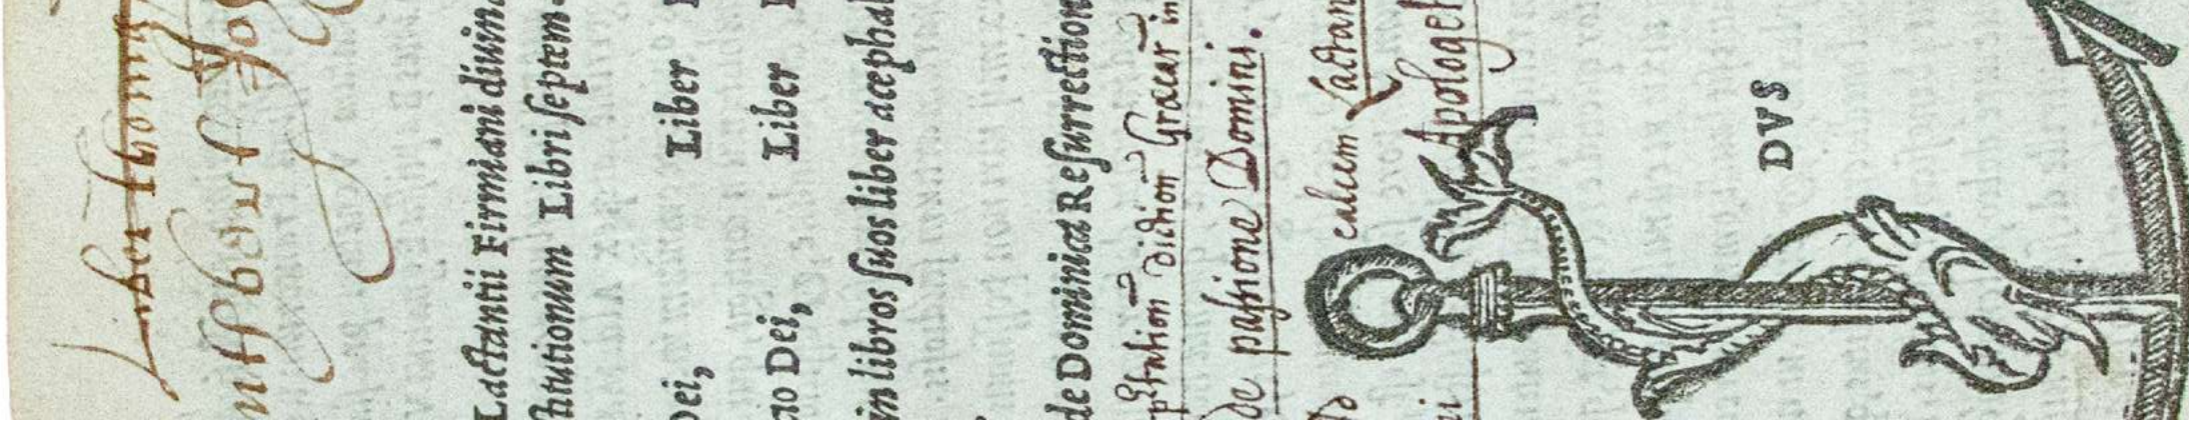 Liber Thomæ
Lactantii Firmiani diuina
titutionum Libri ſeptem.
Dei, Liber
no Dei, Liber
in libros ſuos liber acephal
de Dominicæ Reſurrection
ptation dictionũ Græcar in
De paſsione Domini.
calcem Lactan
Apologet
DVS